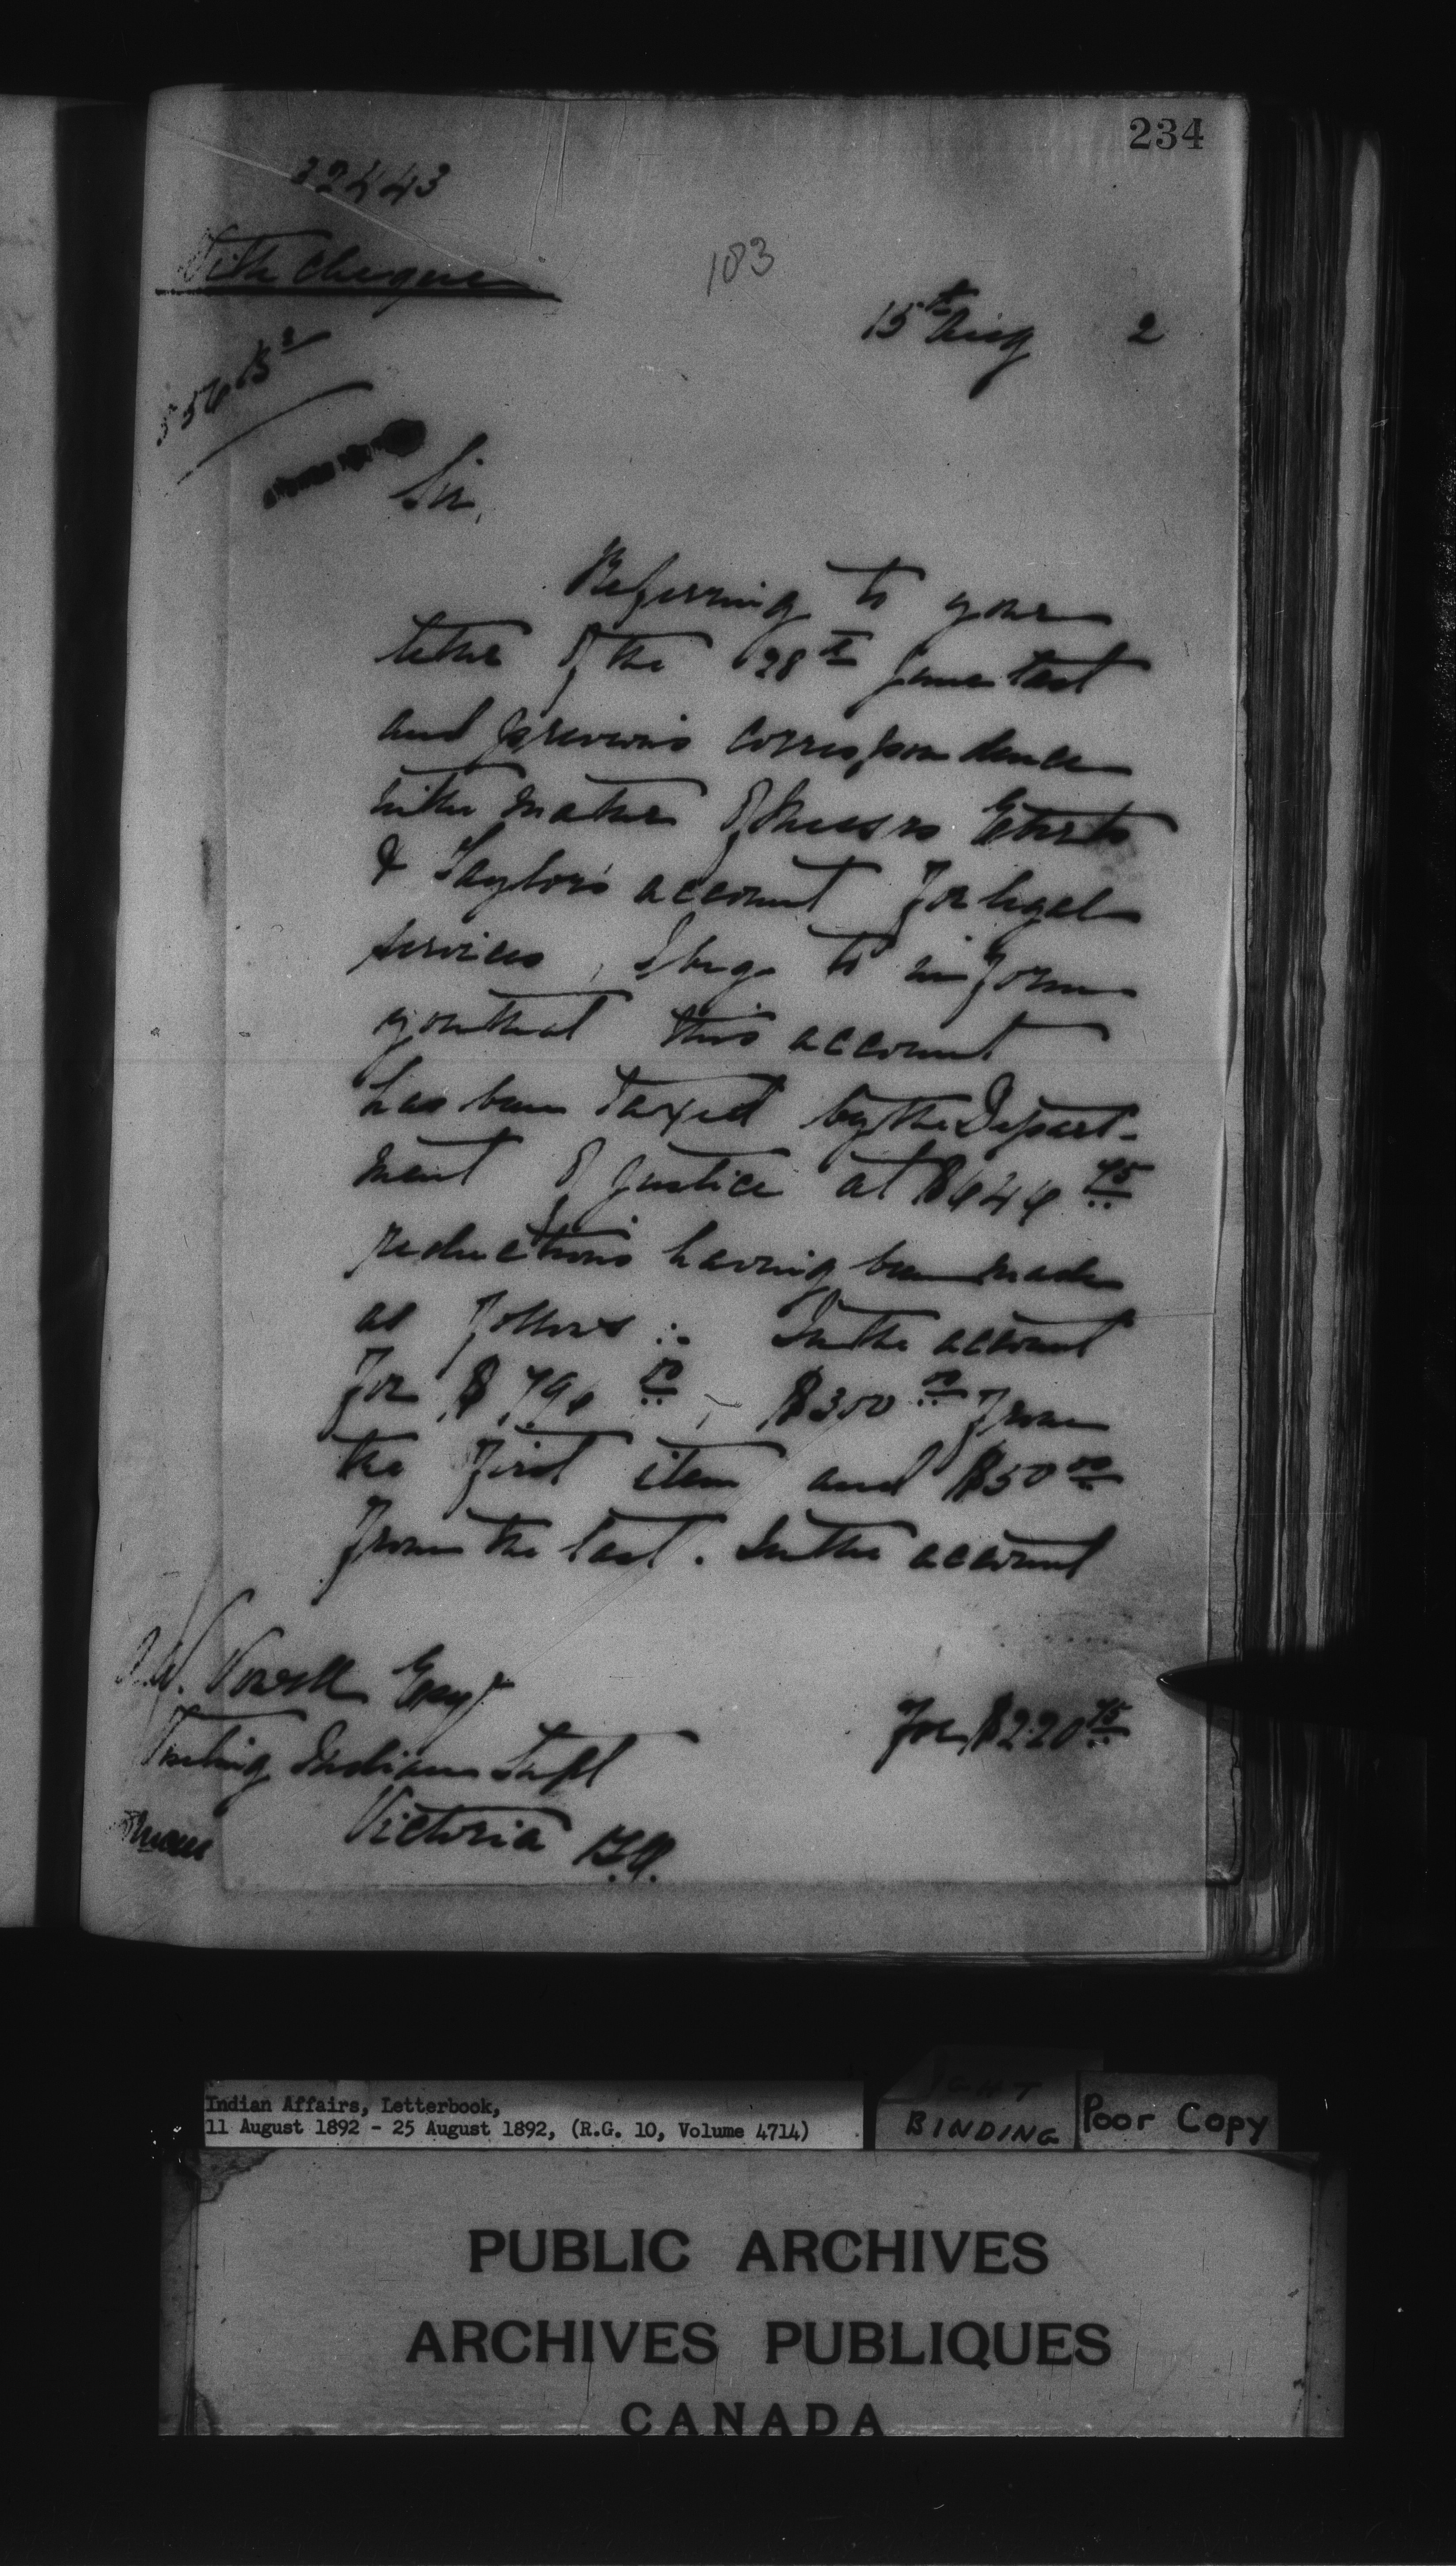 234
32443
With cheque
103
15th Aug 2
Sir,
Referring to your
letter of the 28th June last
and previous correspondence
in the matter of Messrs Eberts
& Taylor's account for legal
services, I beg to inform
you that this account
has been taxed by the Depart-
ment of Justice at $646 75
reductions having been made
as follows :- In the account
for $796 00, $300 00 from
the first item and $50 00
from the last. In the account
for $220 75
A.W. Vowell Esqr
Visiting Indian Supt
Victoria B.C.
Indian Affairs, Letterbook,
11 August 1892 - 25 August 1892, (R.G. 10, Volume 4714)
BINDING
Poor Copy
PUBLIC ARCHIVES
ARCHIVES PUBLIQUES
CANADA